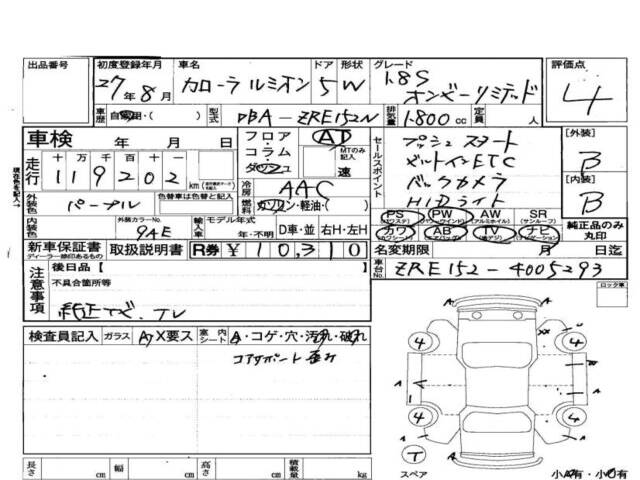 出品番号 初度登録年月 車名 ドア 形状 グレード 評価点
27年8月 カローラ ルミオン 5 W 1.8S オンビーリミテッド 4
車歴 自家用・( ) 型式 DBA-ZRE152N 排気量 1800cc 定員 人
車検 年 月 日 フロア・コラム・ダッシュ AT MTのみ記入 速
走行 十万千百十 119202 km
セールスポイント プッシュスタート
ビルトインETC
バックカメラ
HIDライト
[外装] B
[内装] B
冷房 AAC
外装色 パープル 色替車は色替と記入 燃料 ガソリン・軽油・( )
PS (パワステ) PW (パワーウィンドウ) AW (アルミホイル) SR (サンルーフ)
カワ AB (エアバッグ) TV ナビ (ナビゲーション) 純正品のみ丸印
内装色 外装カラーNo. 9AE 輸入車 モデル年式 年・不明 D車・並 右H・左H
新車保証書 ディーラー捺印あるもの 取扱説明書 R券 ¥10,310
名変期限 月 日迄
車台No. ZRE152-4005293
注意事項 後日品【 】
不具合箇所等
純正ナビ、TV
ロック車
検査員記入 ガラス A・X要ス 室内シート A・コゲ・穴・汚れ・破れ
コアサポート 歪み
4 4
4 4
T
スペア 小A有・小U有
長さ cm 幅 cm 高さ cm 積載量 kg
現在色を記入→